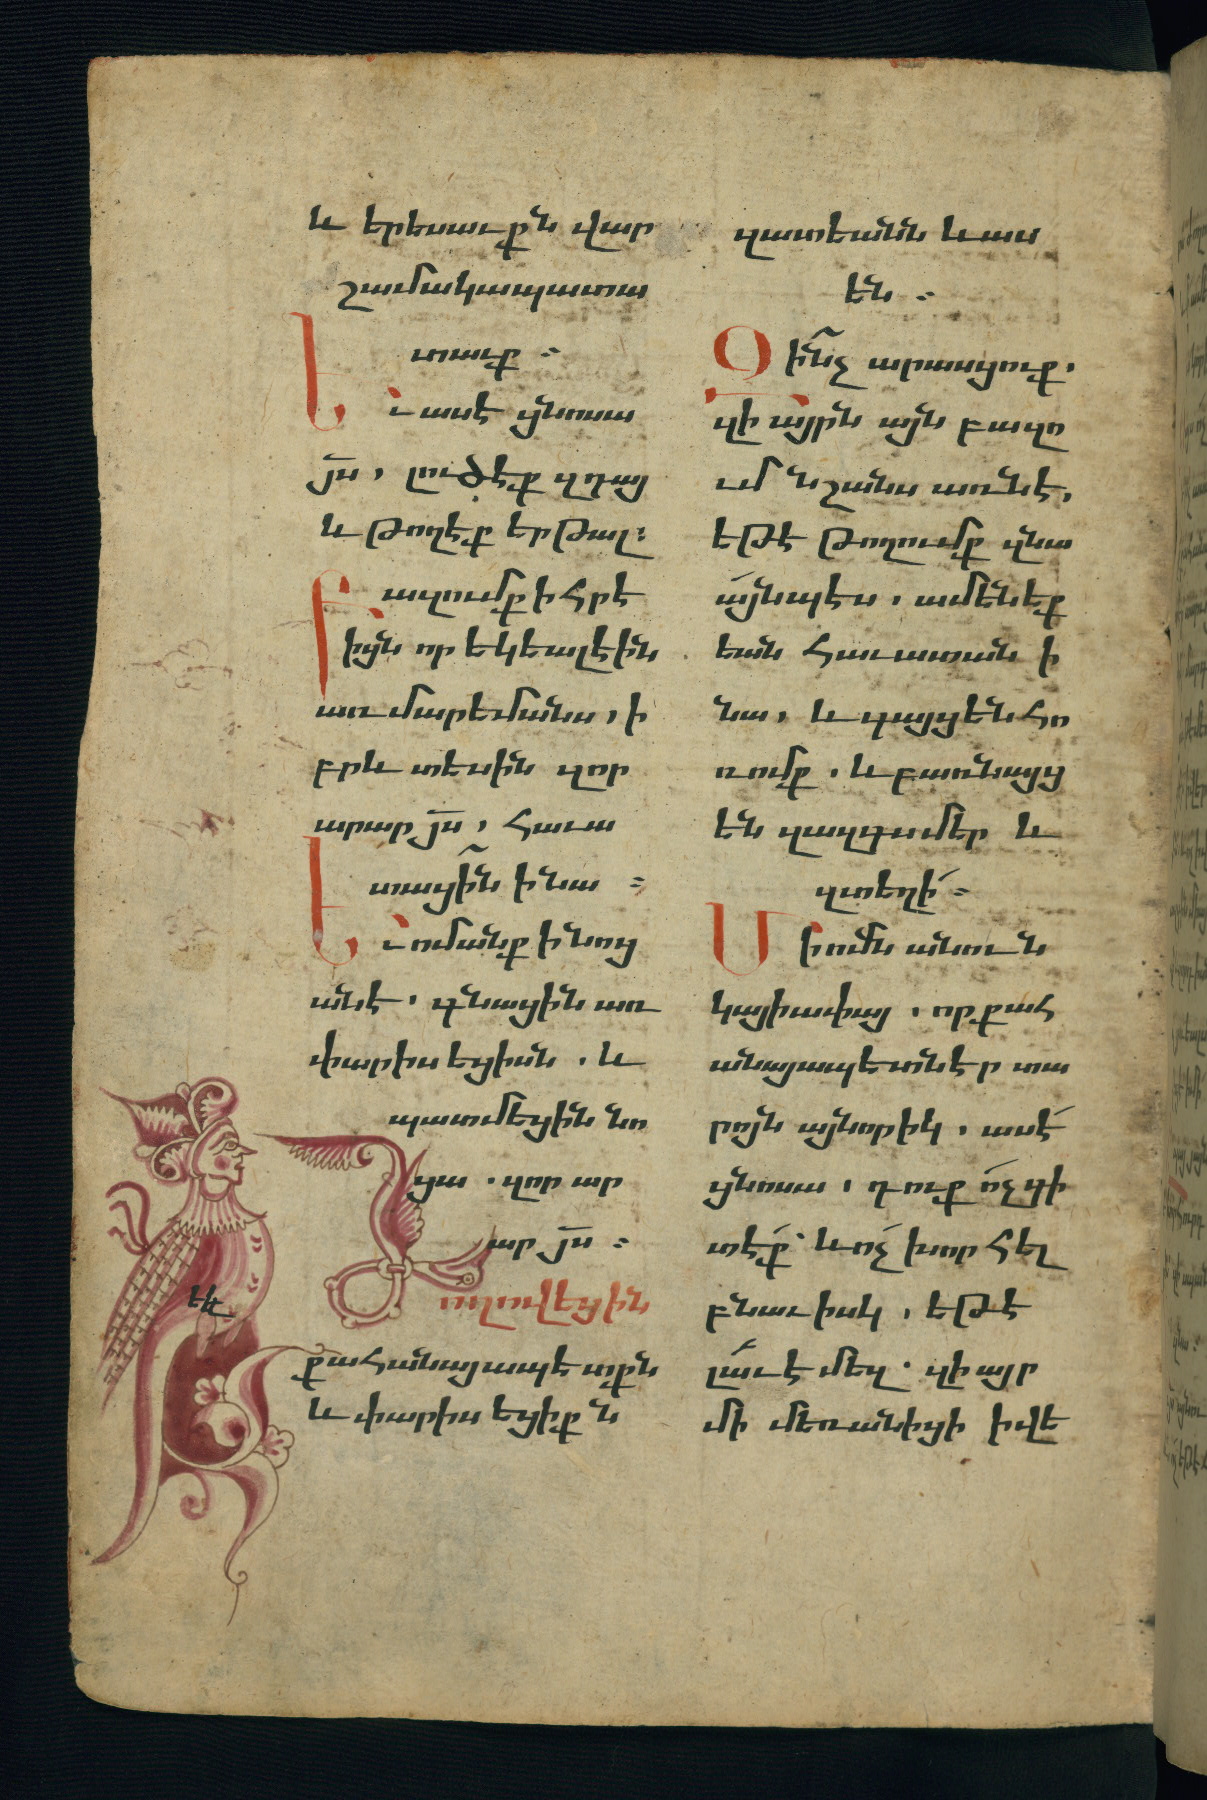 և երեսաւքն վար
շամակապատա
տաւք ։
Եւ ասէ ցնոսա
յս , լուծէք զդայ
և թողէք երթալ։
Բազումք ի հրէ
իցն որ եկեալէին
առ մարեմանս , ի
բրև տեսին զոր
արար յս , հաւա
տացին ի նա ։
Եւ ոմանք ի նոց
անէ . գնացին առ
փարիսեցիսն . և
պատմեցին նո
ցա . զոր ար
ար յս ։
Ժողովեցին
քահանայապետքն
և փարիսեցիքն
զատեանն և աս
են ։
Զինչ արասցուք .
զի այրն այն բազո
ւմ նշանս առնէ ,
եթէ թողումք զնա
այնպէս , ամենեք
եան հաւատան ի
նա , և գայցեն հո
ռոմք . և բառնայց
են զազգս մեր և
զտեղի ։
Մի ոմն անուն
կայիափայ , որ քահ
անայապետ էր տա
րոյն այնորիկ , ասէ
ցնոսա , դուք ոչ գի
տէք և ոչ խորհել
բնաւ իսկ , եթէ
լաւ է մեզ . զի այր
մի մեռանիցի ի վե